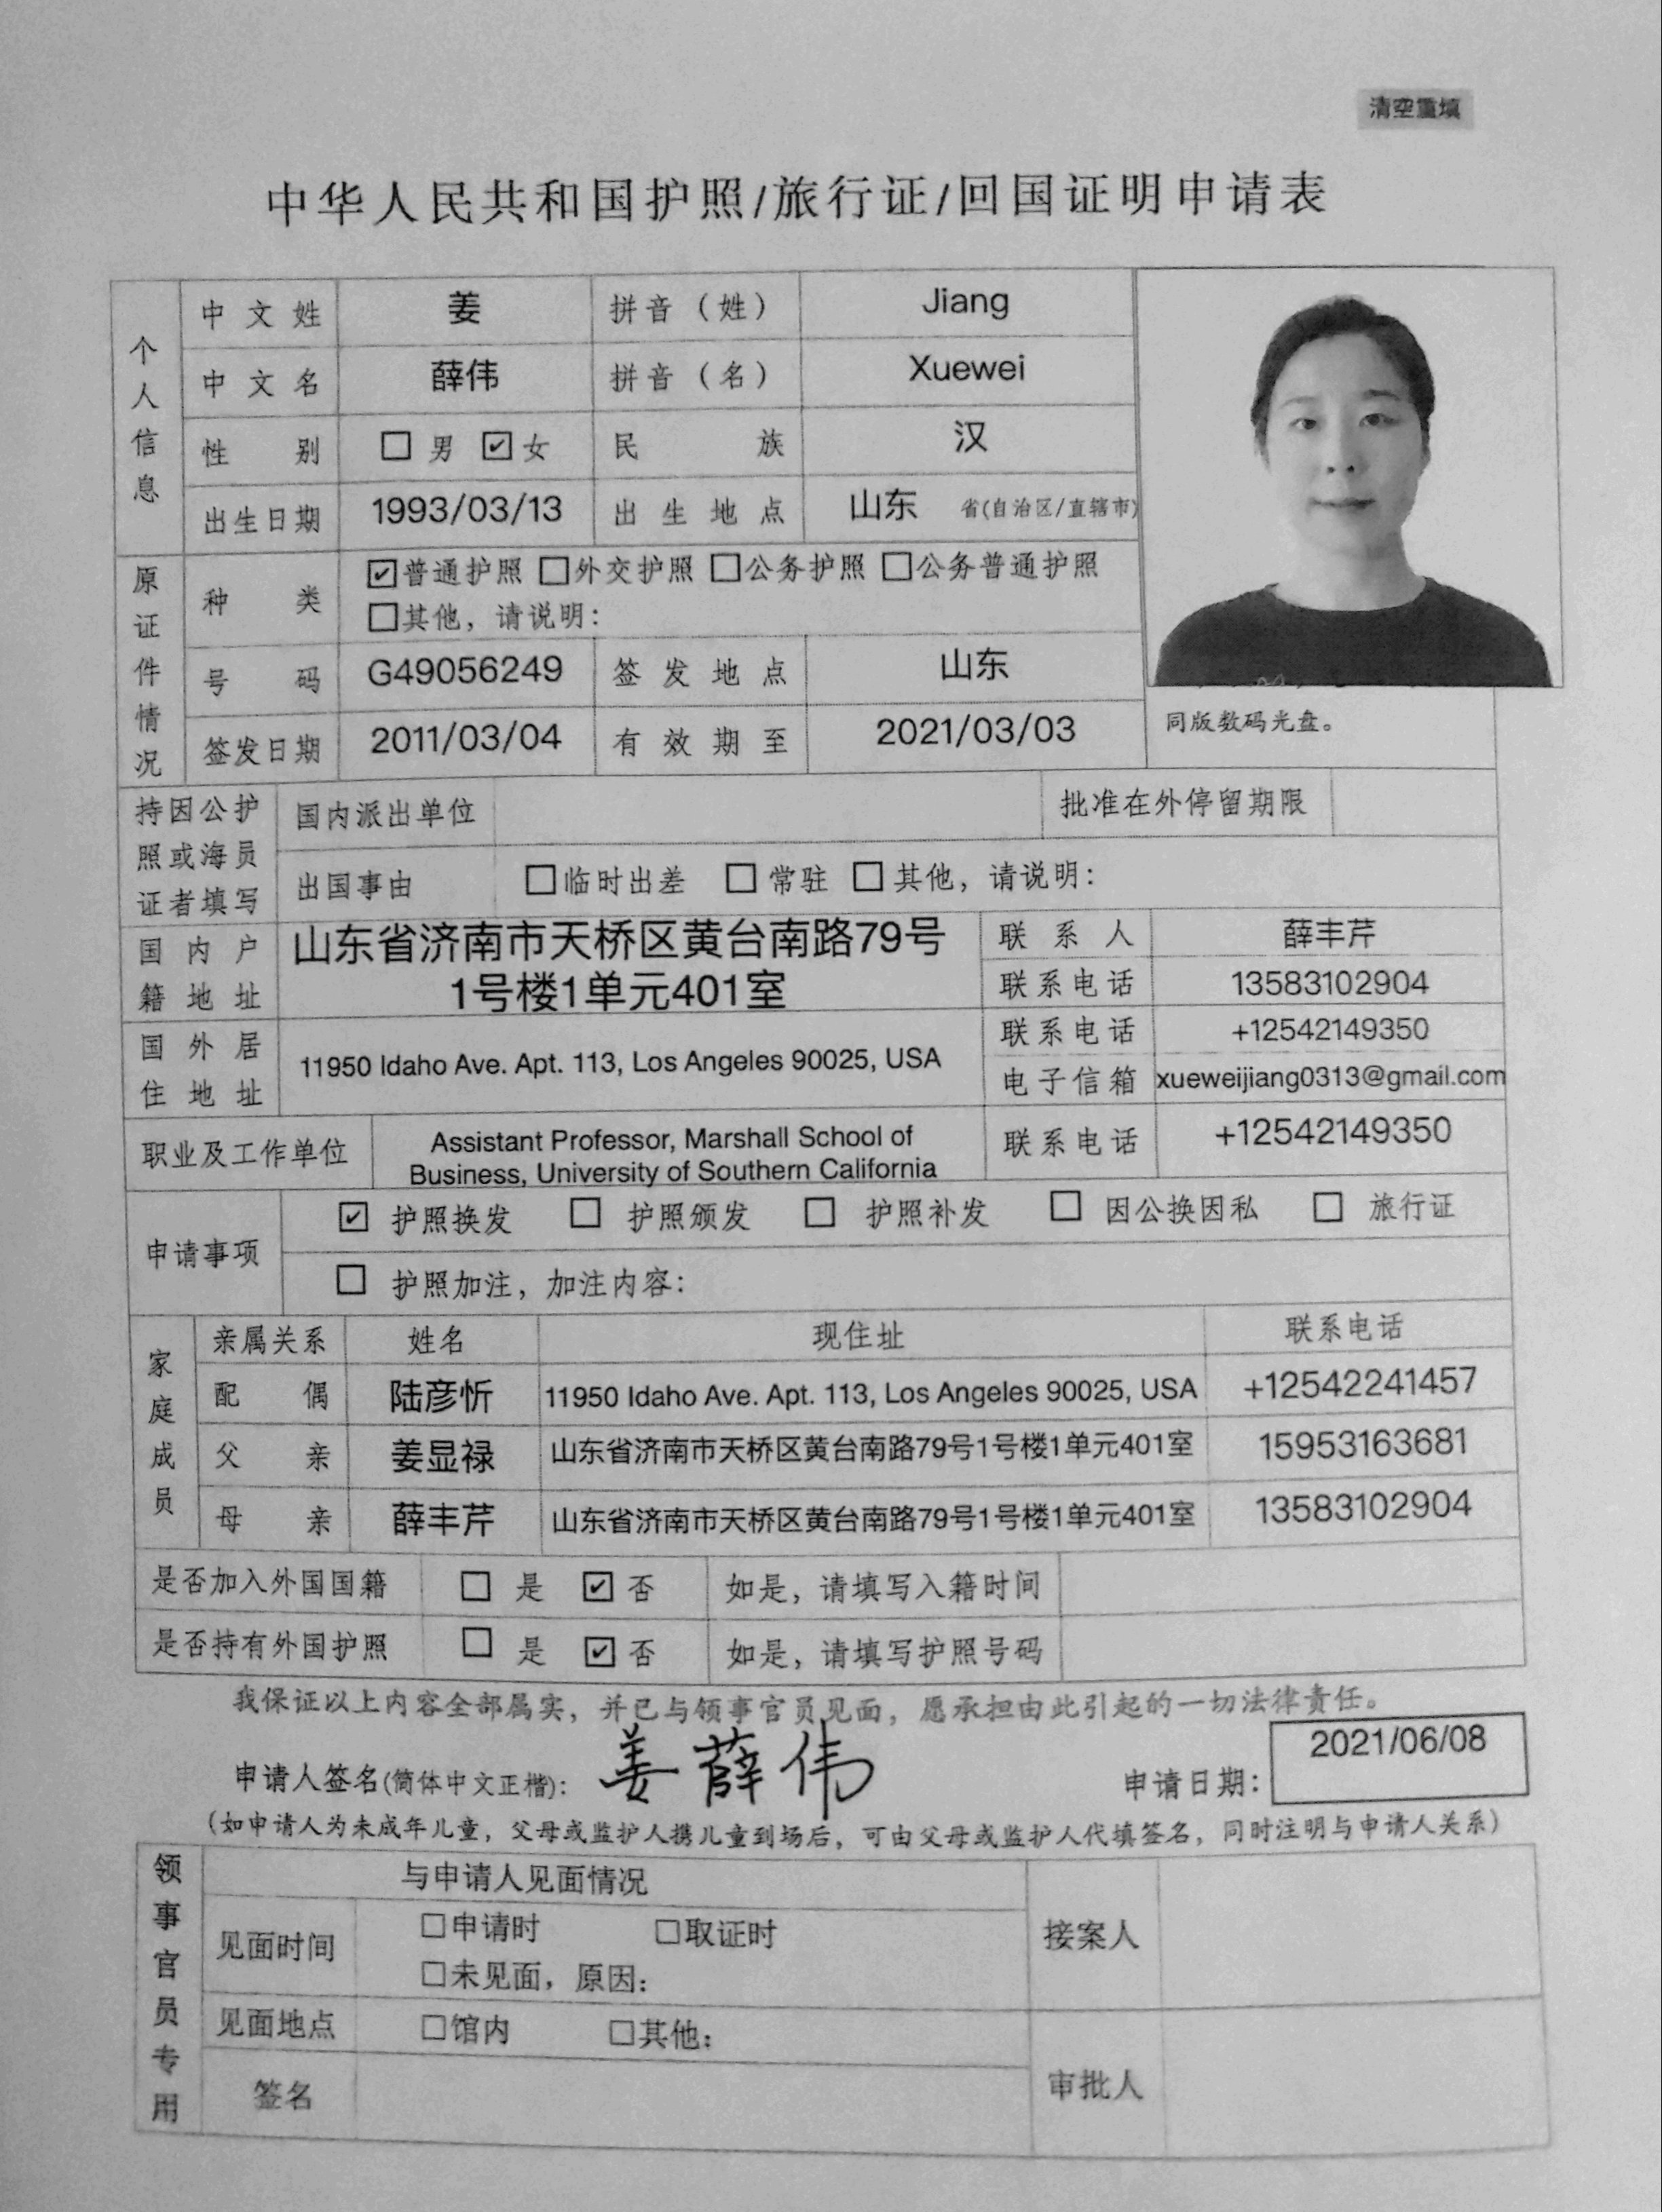 清空重填
中华人民共和国护照/旅行证/回国证明申请表
个人信息
中文姓 姜 拼音（姓） Jiang
中文名 薛伟 拼音（名） Xuewei
性别 男 女 民族 汉
出生日期 1993/03/13 出生地点 山东 省(自治区/直辖市)
原证件情况
种类 普通护照 外交护照 公务护照 公务普通护照
其他，请说明：
号码 G49056249 签发地点 山东
签发日期 2011/03/04 有效期至 2021/03/03
同版数码光盘。
持因公护照或海员证者填写
国内派出单位 批准在外停留期限
出国事由 临时出差 常驻 其他，请说明：
国内户籍地址 山东省济南市天桥区黄台南路79号
1号楼1单元401室
联系人 薛丰芹
联系电话 13583102904
国外居住地址 11950 Idaho Ave. Apt. 113, Los Angeles 90025, USA
联系电话 +12542149350
电子信箱 xueweijiang0313@gmail.com
职业及工作单位 Assistant Professor, Marshall School of
Business, University of Southern California
联系电话 +12542149350
申请事项 护照换发 护照颁发 护照补发 因公换因私 旅行证
护照加注，加注内容：
家庭成员
亲属关系 姓名 现住址 联系电话
配偶 陆彦忻 11950 Idaho Ave. Apt. 113, Los Angeles 90025, USA +12542241457
父亲 姜显禄 山东省济南市天桥区黄台南路79号1号楼1单元401室 15953163681
母亲 薛丰芹 山东省济南市天桥区黄台南路79号1号楼1单元401室 13583102904
是否加入外国国籍 是 否 如是，请填写入籍时间
是否持有外国护照 是 否 如是，请填写护照号码
我保证以上内容全部属实，并已与领事官员见面，愿承担由此引起的一切法律责任。
申请人签名(简体中文正楷)： 姜薛伟 申请日期： 2021/06/08
（如申请人为未成年儿童，父母或监护人携儿童到场后，可由父母或监护人代填签名，同时注明与申请人关系）
领事官员专用
与申请人见面情况
见面时间 申请时 取证时
未见面，原因：
接案人
见面地点 馆内 其他：
签名
审批人